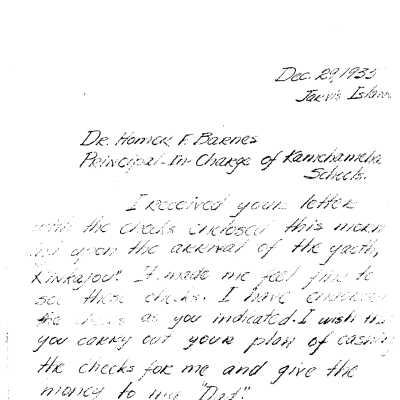 Dec. 29, 1935
Jarvis Islan
Dr. Homer F. Barnes
Principal-In-Charge of Kamehameha
Schools.
I received your letter
with the checks enclosed this morn
ing upon the arrival of the yacht,
"Kinkajou". It made me feel fine to
see these checks. I have endorsed
the checks as you indicated. I wish that
you carry out your plan of cashing
the checks for me and give the
money to my "Dad".